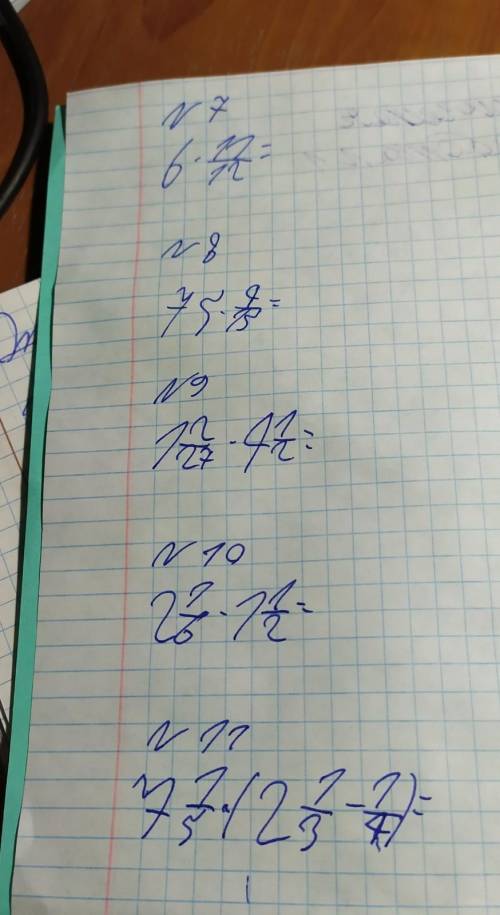 №7
6 · 11/12 =
№8
75 · 9/15 =
№9
1 2/27 · 4 1/2 =
№10
2 1/6 · 1 1/2 =
№11
7 1/5 · (2 1/3 - 1/4) =